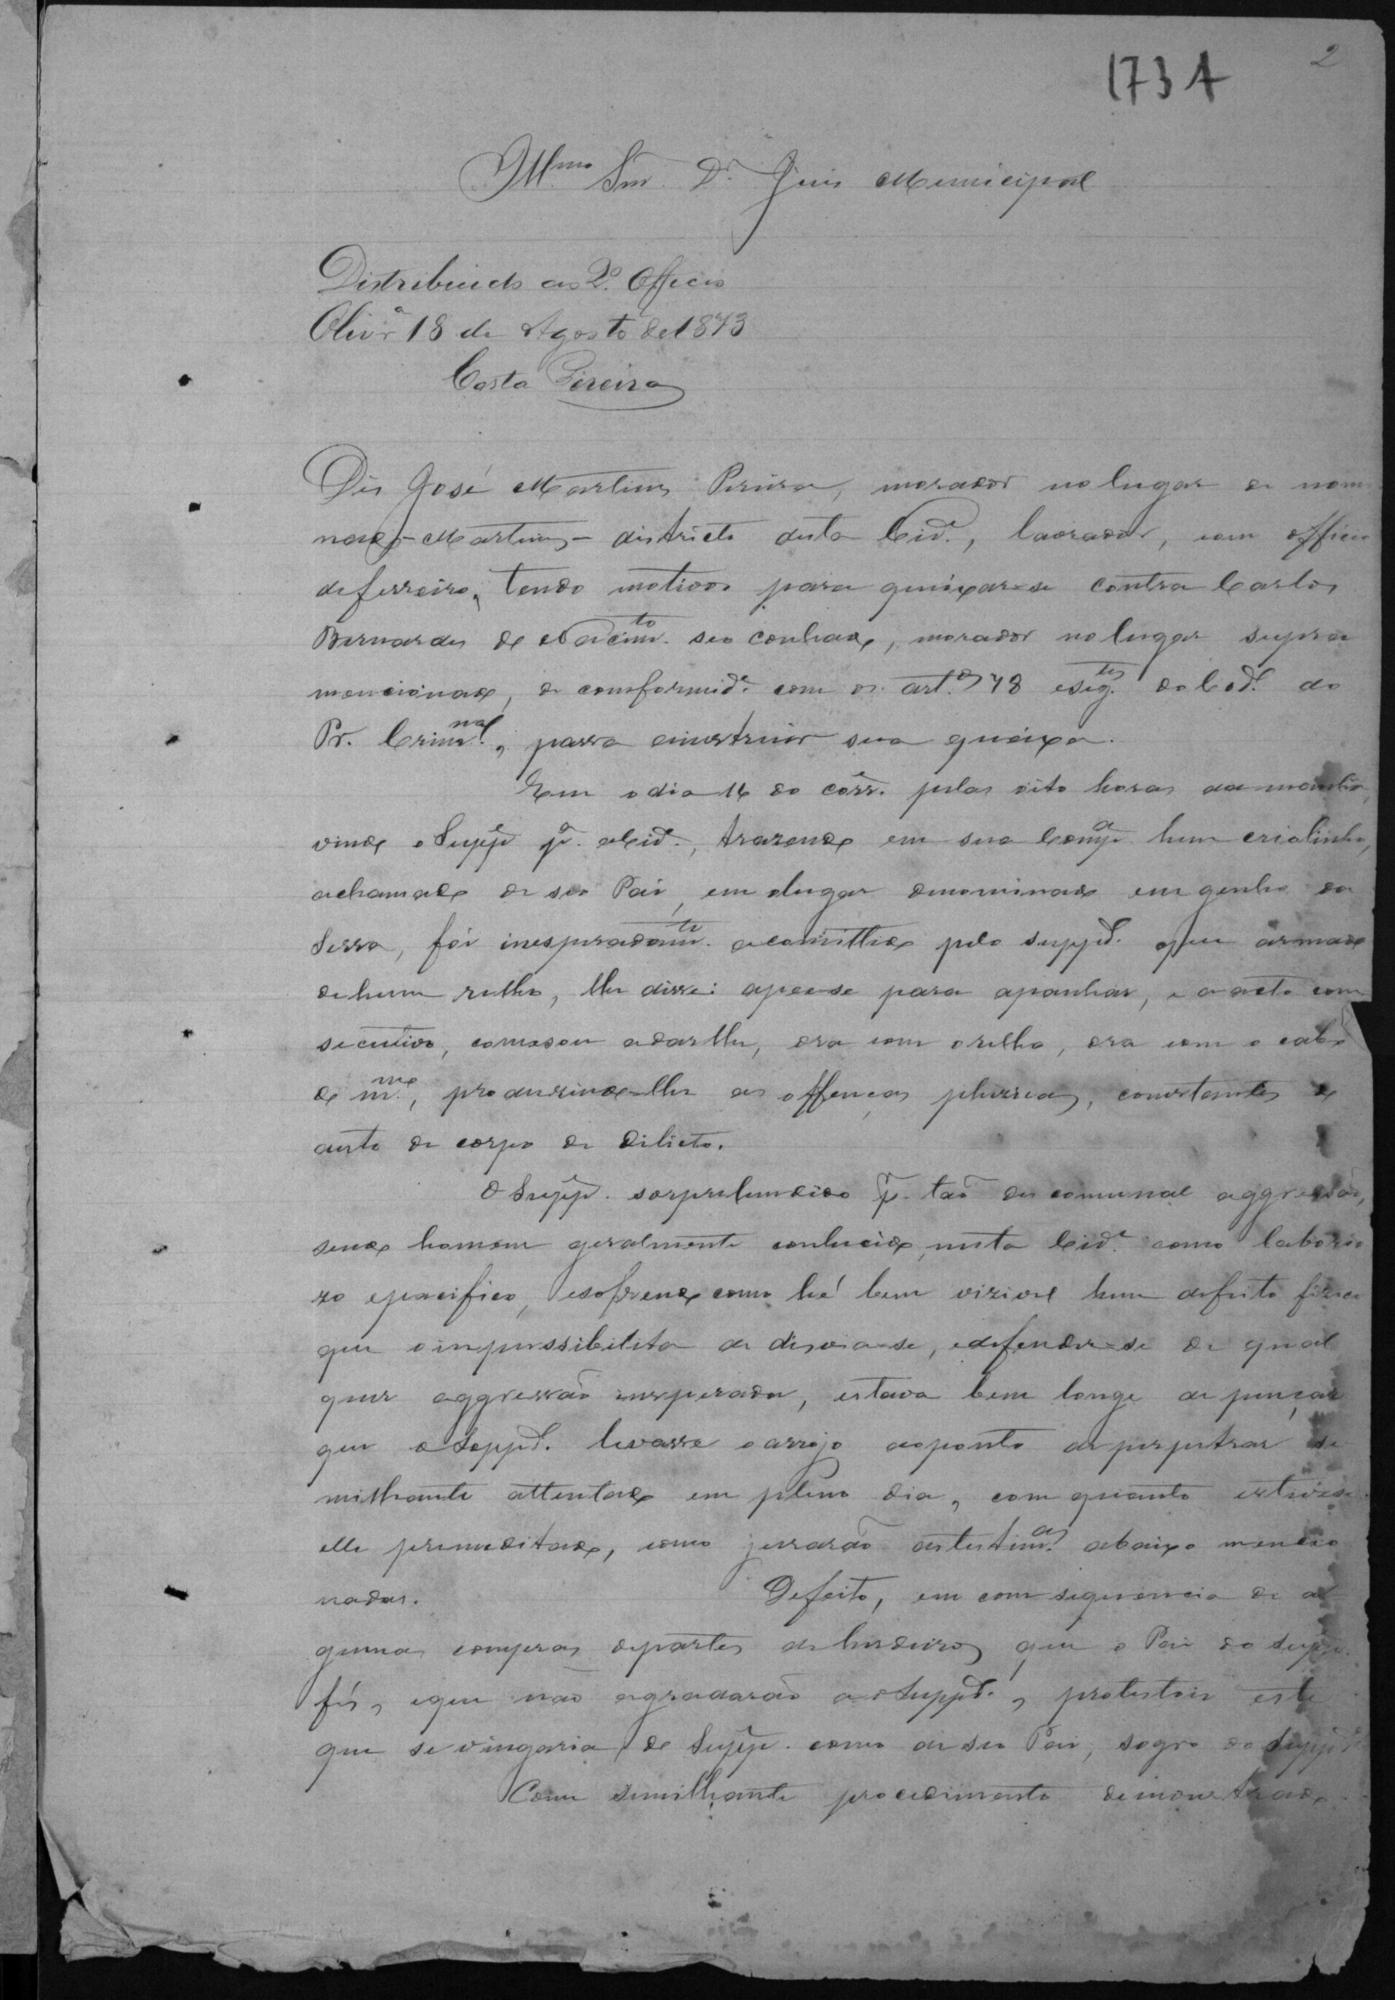 2
173A
Illmo Snr. Dr. Juis Municipal
Distribuido ao 2º Officio
Olivrª 18 de Agosto de 1873
Costa Pereira
Dis José Martins Pereira, morador no lugar de nomi
nado - Martins - districto desta Cide, lavrador, com officio
de ferreiro, tendo motivos para queixar-se contra Carlos
Bernardes do Nacimto seo conhado, morador no lugar supra
mencionado, de comformide com os artos 78 e segtes do Cod. do
Pr. Crimnal, passa a instruir sua queixa.
Em o dia 16 do corre pelas oito horas da manhã,
vindo o Suppe pª a Cide, trazendo em sua Compª hum criolinho,
a chamado de seo Pai, em o lugar denominado engenho da
Serra, foi inesperadamte acomittido pelo suppdo que armado
de hum relho, lhe disse: apee-se para apanhar, e a acto com
secutivo, comesou a dar lhe, ora com o relho, ora com o cabo
do mmo, produzindo-lhe as offenças phizicas, constantes do
auto de corpo de dilicto.
O Suppe sorprehendido pr tão descomunal aggressão,
sendo homem geralmente conhecido nesta Cide como laborio
zo e pacifico, e sofrendo como hé bem vizivel hum defeito fizico
que o impossibilita de desvia-se, e defender-se de qual
quer aggressão insperada, estava bem longe de pençar
que o Suppdo levasse o arrojo ao ponto de perpetrar se
milhante attentado em pleno dia, com quanto estivese
elle premeditado, como jurarão as testimas abaixo mencio
nadas. Defeito, em comsequencia de al
gumas compras de partes de herdeiros que o Pai do Suppe
fés, e que não agradarão ao Suppdo, protestou este
que se vingaria do Suppe como de seo Pai, sogro do Suppdo
Com similhante procedimento demonstrado